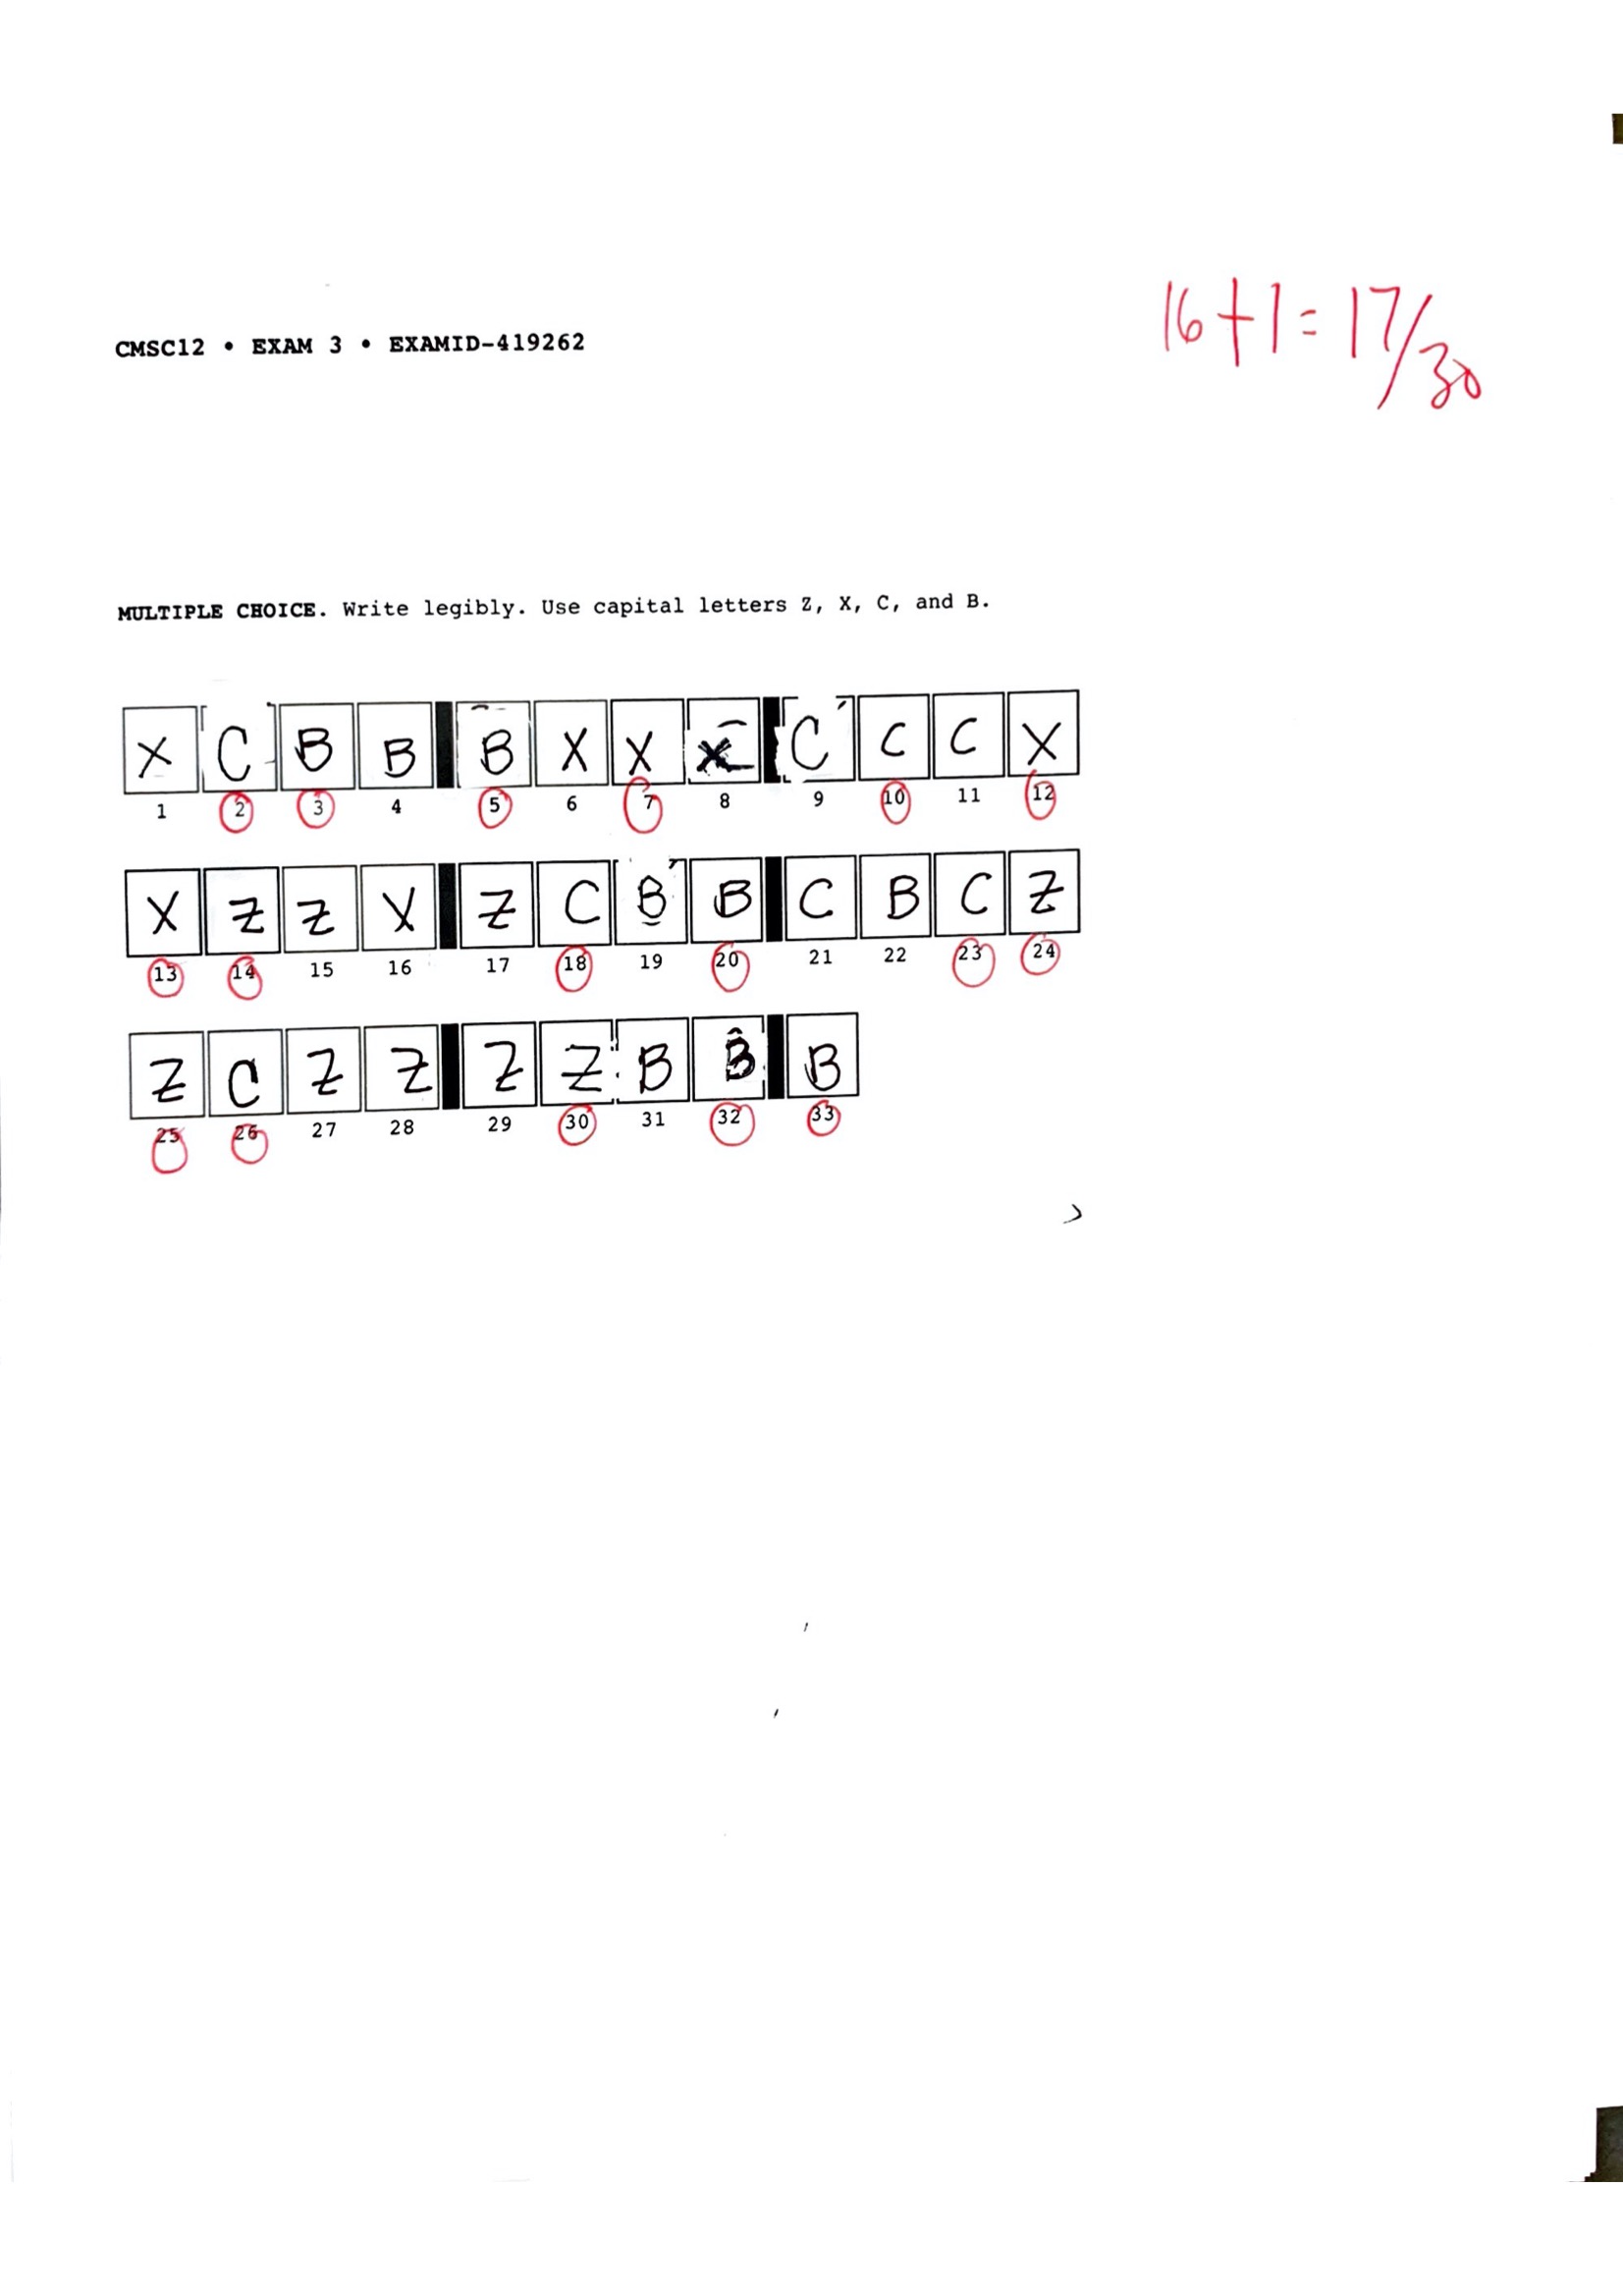 16+1=17/30
CMSC12 • EXAM 3 • EXAMID-419262
MULTIPLE CHOICE. Write legibly. Use capital letters Z, X, C, and B.
X C B B B X X X C C C X
1 2 3 4 5 6 7 8 9 10 11 12
X Z Z X Z C B B C B C Z
13 14 15 16 17 18 19 20 21 22 23 24
Z C Z Z Z Z B B B
25 26 27 28 29 30 31 32 33